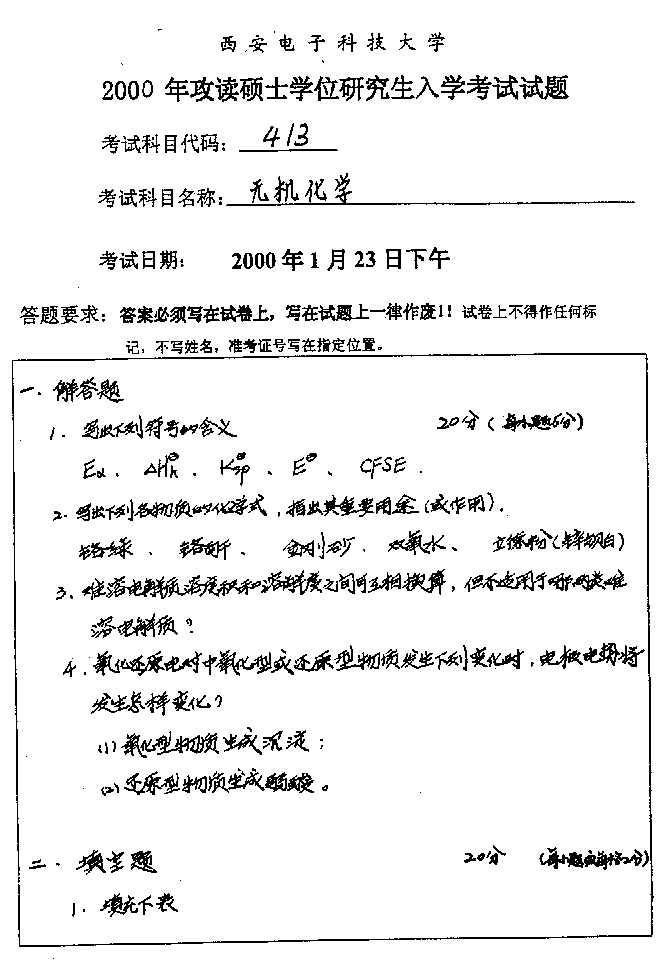 西安电子科技大学
2000 年攻读硕士学位研究生入学考试试题
考试科目代码：413
考试科目名称：无机化学
考试日期： 2000 年 1 月 23 日下午
答题要求：答案必须写在试卷上，写在试题上一律作废!! 试卷上不得作任何标
记，不写姓名，准考证号写在指定位置。
一．解答题
1．写出下列符号的含义 20分（每小题5分）
Ea、ΔHh⊖、Ksp⊖、E⊖、CFSE．
2．写出下列各物质的化学式，指出其重要用途（或作用）．
铬绿、铬酐、金刚砂、双氧水、立德粉（锌钡白）
3、难溶电解质溶度积和溶解度之间可互相换算，但不适用于哪两类难
溶电解质？
4．氧化还原电对中氧化型或还原型物质发生下列变化时，电极电势将
发生怎样变化？
(1) 氧化型物质生成沉淀；
(2) 还原型物质生成弱酸。
二．填空题 20分 （每小题或每格2分）
1．填充下表